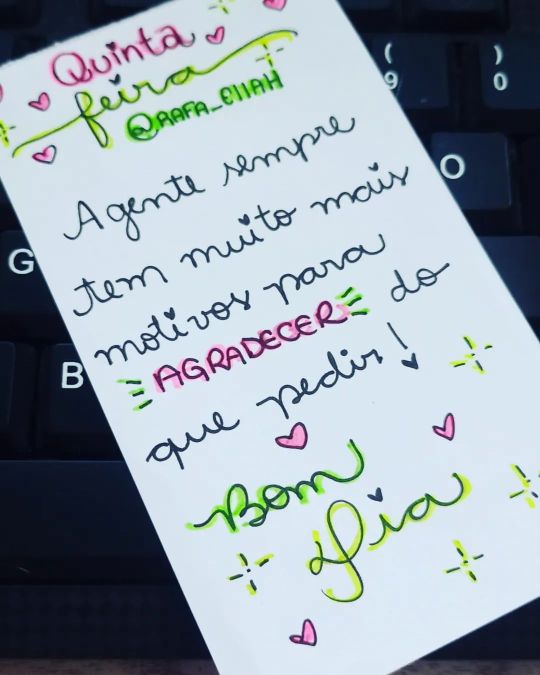 Quinta
feira
@RAFA_EllAH
Agente sempre
tem muito mais
motivos para
AGRADECER do
que pedir!
Bom
Dia
( 9
) 0
O
G
B